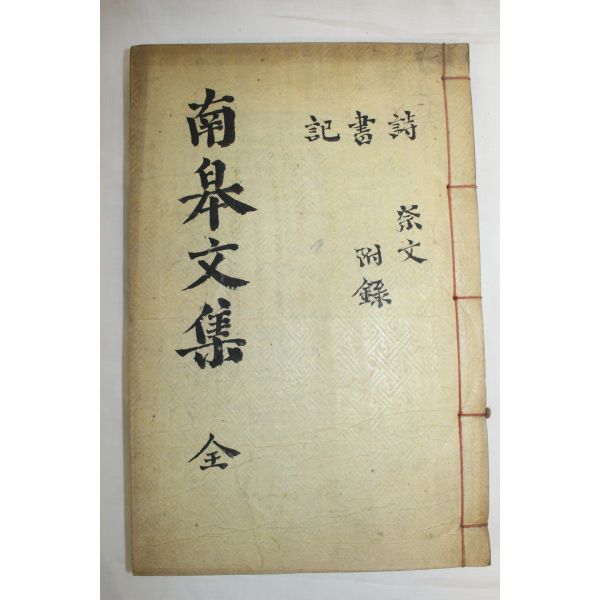 詩書記
祭文
附錄
南皐文集 全